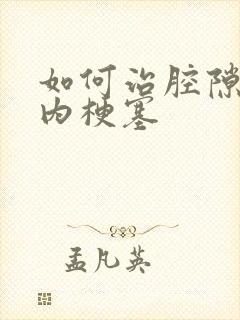 如何治腔隙
内梗塞
孟凡英